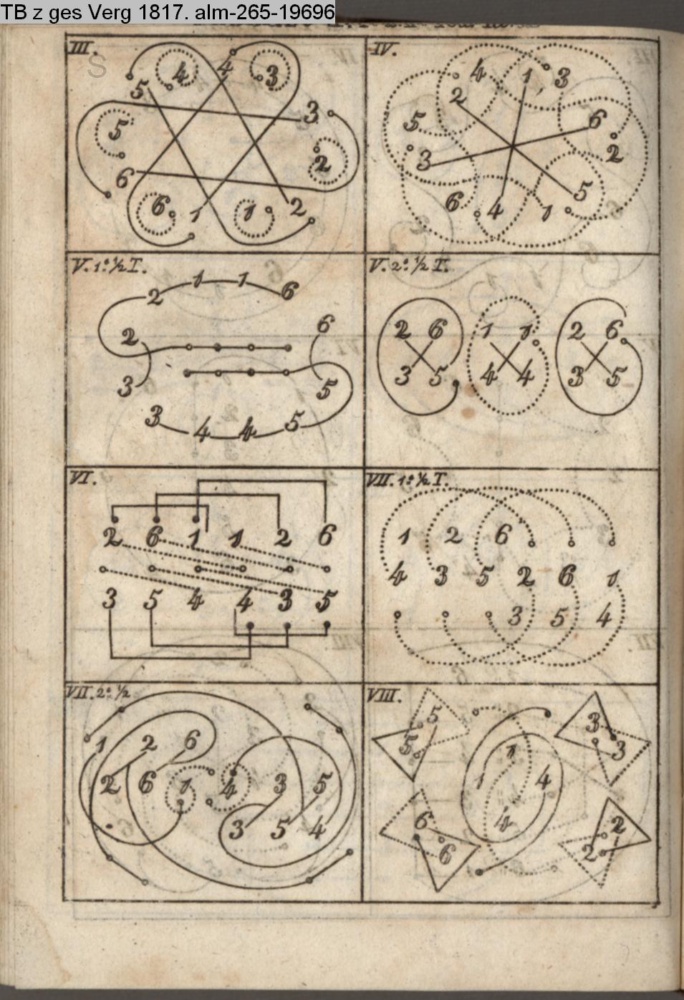 TB z ges Verg 1817. alm-265-19696
III.
S
5 4 4 3
3
5
2
6
6 1 1 2
IV.
4 1 3
2
5 6
2
3
5
6 4 1
V. 1º. ½ T.
2 1 1 6
2 6
3 5
3 4 4 5
V. 2º. ½ T.
2 6 1 1 2 6
3 5 4 4 3 5
VI.
2 6 1 1 2 6
3 5 4 4 3 5
VII. 1º. ½ T.
1 2 6
4 3 5 2 6 1
3 5 4
VII. 2º. ½
1 2 6
2 6 1 4 3 5
3 5 4
VIII.
5 3
5 1 3
1 4
6 4 2
6 2